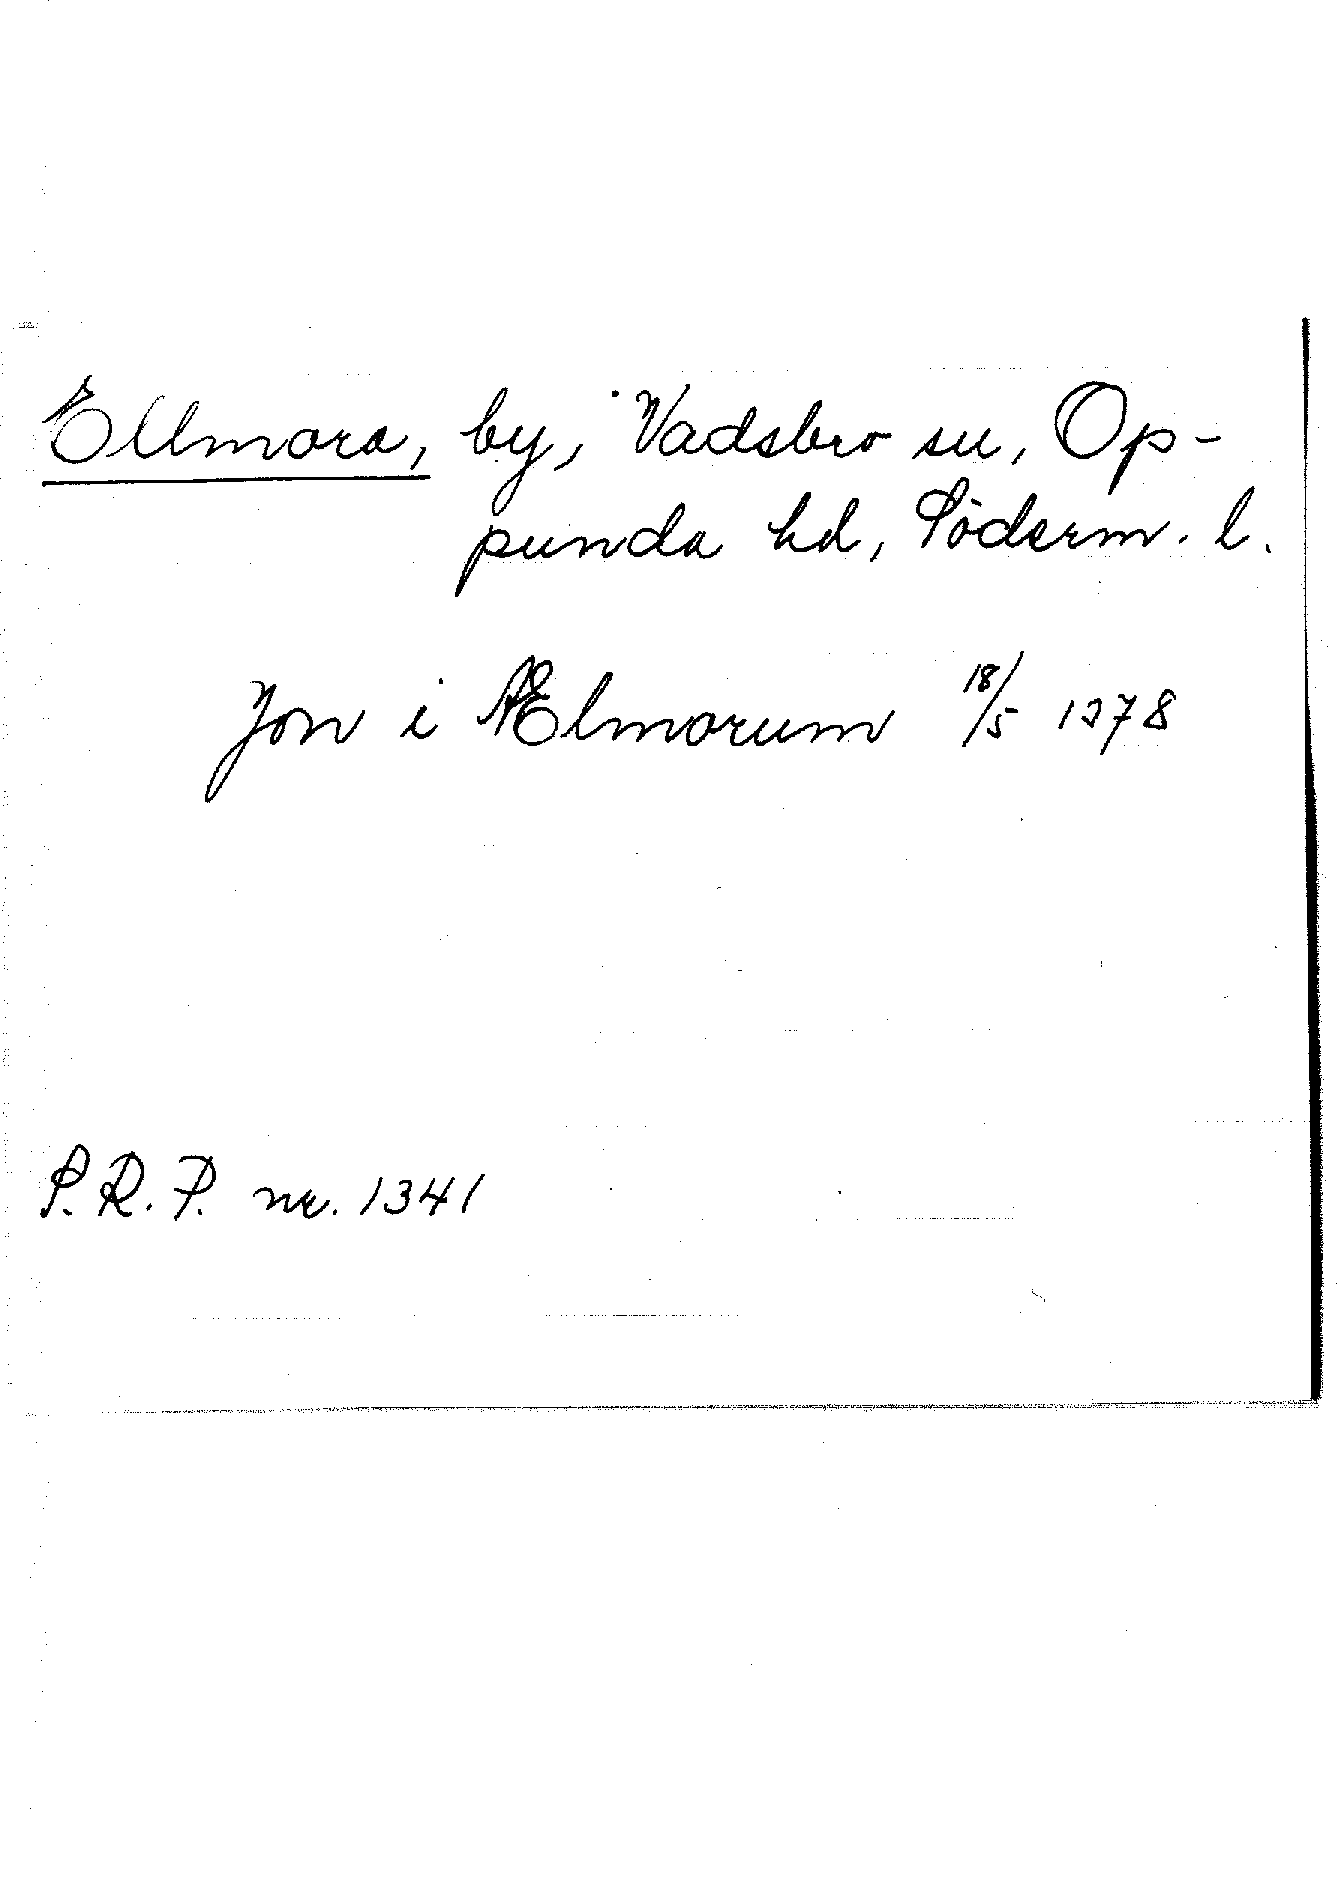 Ellmora, by, Vadsbro sn, Op-
punda hd, Söderm. l.
Jon i Ælmorum 18/5 1378
S.R.P. nr. 1341